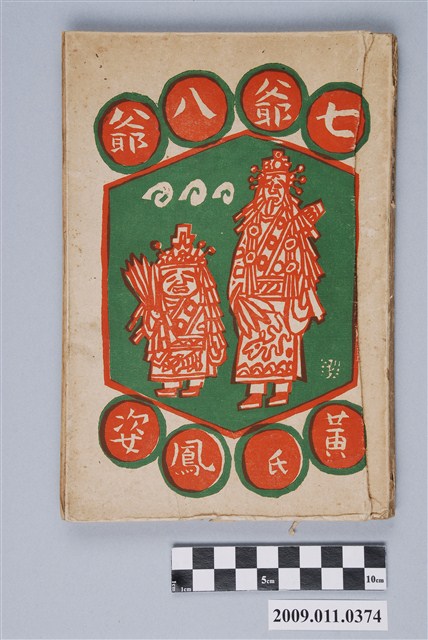 七爺八爺
黃氏鳳姿
1cm 5cm 10cm
2009.011.0374